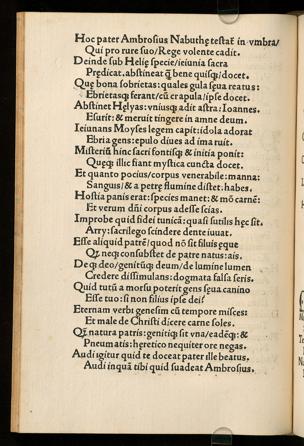 Hoc pater Ambrosius Nabuthę testat᷑ in vmbra/
Qui pro rure suo/ Rege volente cadit.
Deinde sub Helię specie/ieiunia sacra
Prędicat. abstineat q̃ bene quisq;/docet.
Quę bona sobrietas: quales gula sęua reatus:
Ebrietasq; ferant/cũ crapula/ipse docet.
Abstinet Hęlyas: vniusq; adit astra: Ioannes.
Esurit: & meruit tingere in amne deum.
Ieiunans Moyses legem capit: idola adorat
Ebria gens: epulo diues ad ima ruit.
Misteriũ hinc sacri fontisq; & initia ponit:
Quęq; illic fiant mystica cuncta docet.
Et quanto pocius/corpus venerabile: manna:
Sanguis/& a petrę flumine distet: habes.
Hostia panis erat: species manet: & mõ carnẽ:
Et verum dñi corpus adesse scias.
Improbe quid fidei tunicã: quasi sutilis hęc sit.
Arry: sacrilego scindere dente iuuat.
Esse aliquid patrẽ/quod nõ sit filius ęque
Qz̃ neq; consubstet de patre natus: ais.
De q; deo/genitũq; deum/de lumine lumen
Credere dissimulans: dogmata falsa seris.
Quid tutũ a morsu poterit gens sęua canino
Esse tuo: si non filius ipse dei?
Eternam verbi genesim cũ tempore misces:
Et male de Christi dicere carne soles.
Qz̃ natura patris: genitiq; sit vna/eadẽq: &
Pneumatis: hęretico nequiter ore negas.
Audi igitur quid te doceat pater ille beatus.
Audi inquã tibi quid suadeat Ambrosius.